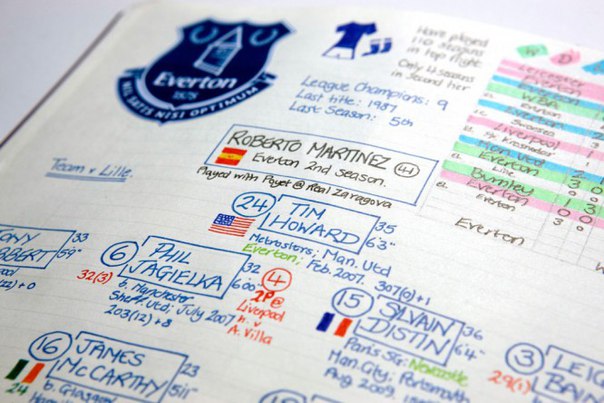 Everton
1878
NIL SATIS NISI OPTIMUM
Have played
110 seasons
in top flight
Only 4 seasons
in second tier
League Champions: 9
Last title: 1987
Last Season: 5th
W D
Leicester
Everton
WBA
Everton
Everton
Swansea
Liverpool
Everton
Fk Krasnodar
Man Utd
Everton
Lille
Burnley
Everton
Everton
Everton
1 3
3 0
1
0 0
3 0
ROBERTO MARTINEZ 41
Everton 2nd season.
Played with Poyet @ Real Zaragova
Team v Lille.
24 TIM
HOWARD
35
6'3"
Metrostars; Man. Utd
Everton; Feb. 2007. 307(0)+1
TONY
33
5'9"
6 PHIL
JAGIELKA
32
6'00"
32(3)
b. Manchester
Sheff. Utd, July 2007
203(12)+8
4
2P@
Liverpool
h. v
A. Villa
15 SYLVAIN
DISTIN
36
6'4"
Paris SG; Newcastle
Man. City; Portsmouth
Aug 2009,
3
29(1)
16 JAMES
McCARTHY
24
5'11"
b. Glasgow
18